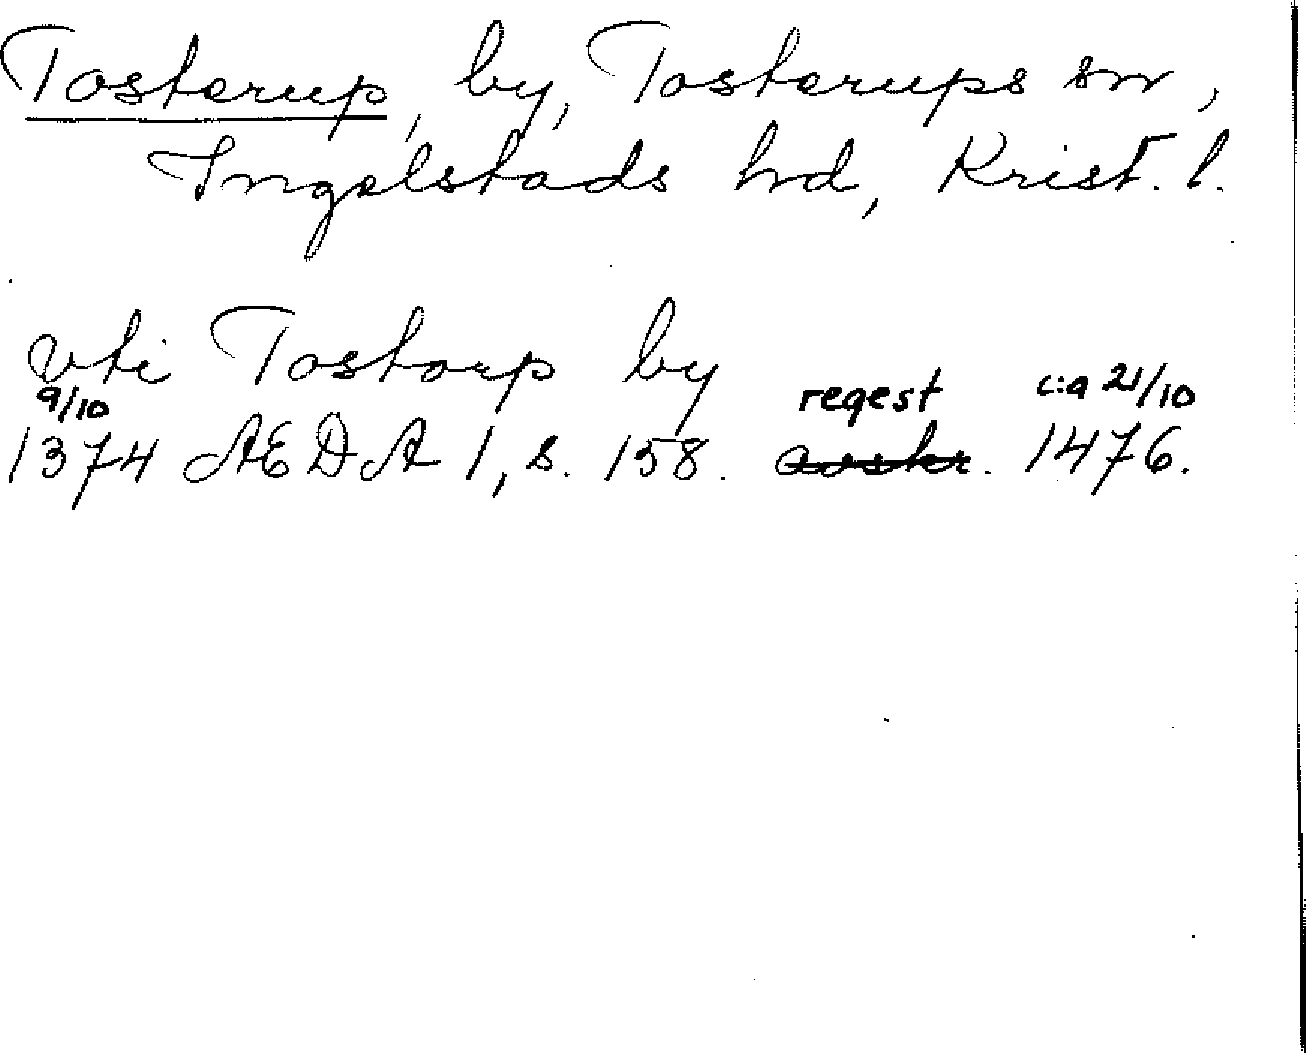 Tosterup, by, Tosterups sn,
Ingelstads hd, Krist. l.
vti Tostorp by
9/10 regest c:a 21/10
1374 AEDA 1, s. 158. avskr. 1476.